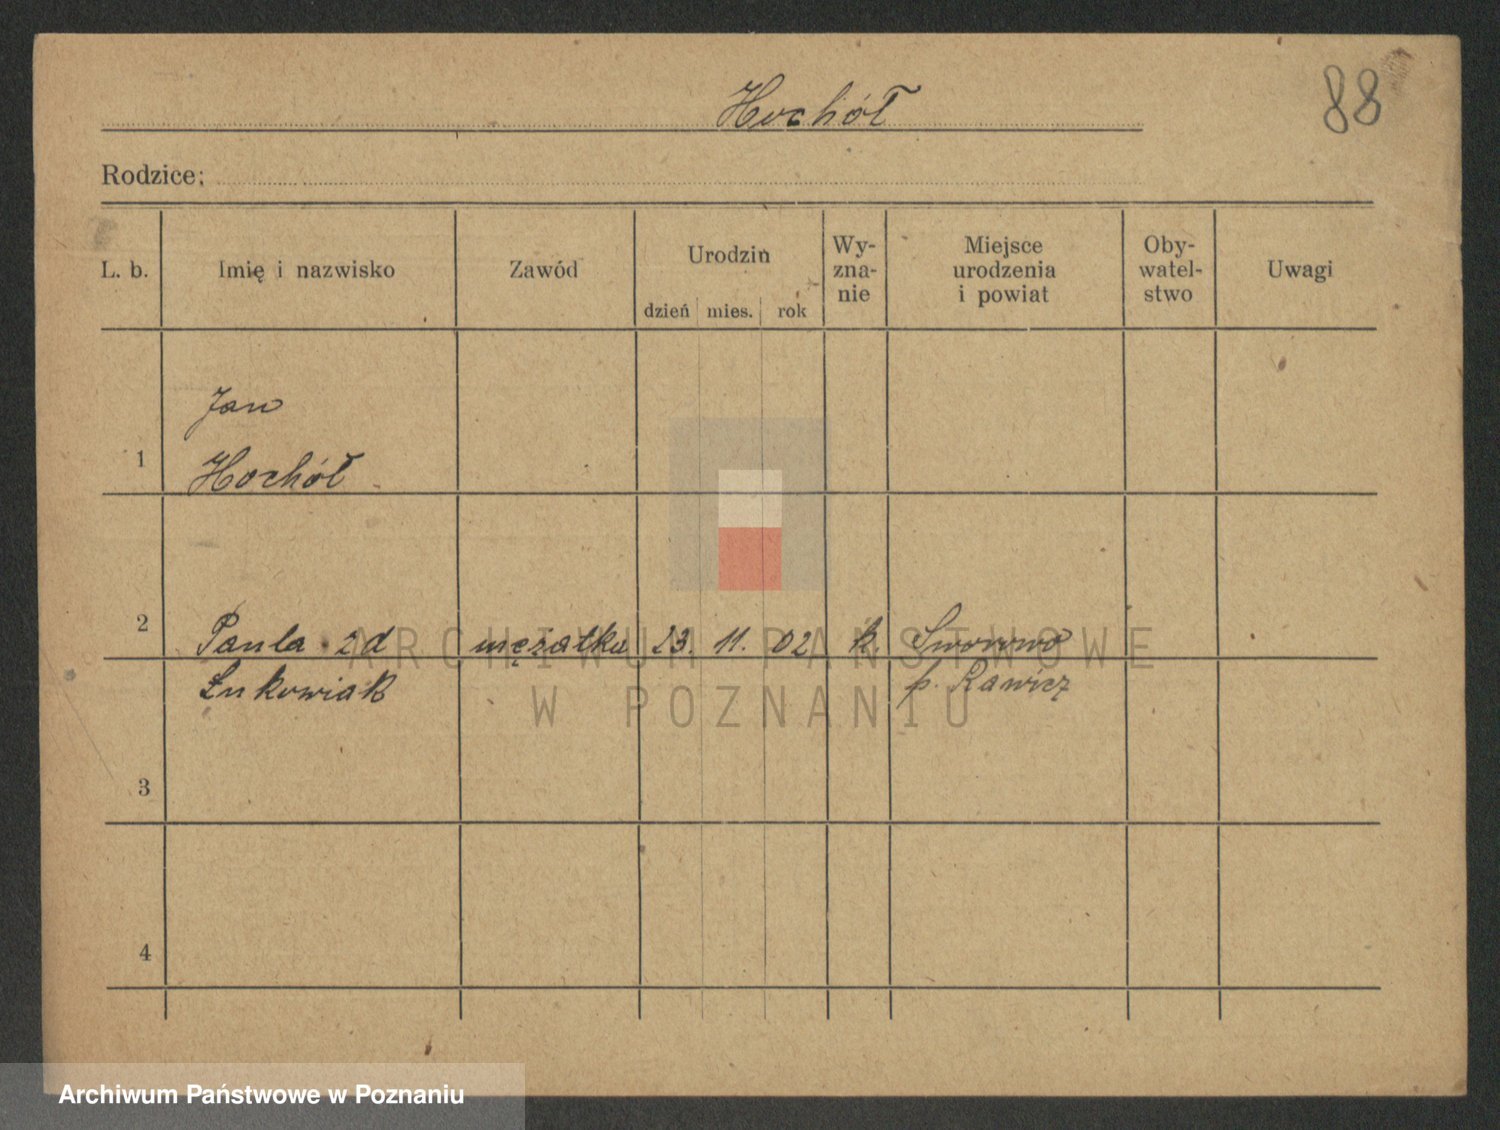 Hochół
88
Rodzice:
L. b. Imię i nazwisko Zawód Urodzin Wy- Miejsce Oby- Uwagi
zna- urodzenia watel-
nie i powiat stwo
dzień mies. rok
Jan
1 Hochół
2 Paula zd mężatka 23. 11. 02 k.
Łukowiak p. Rawicz
3
4
ARCHIWUM PAŃSTWOWE
W POZNANIU
Archiwum Państwowe w Poznaniu